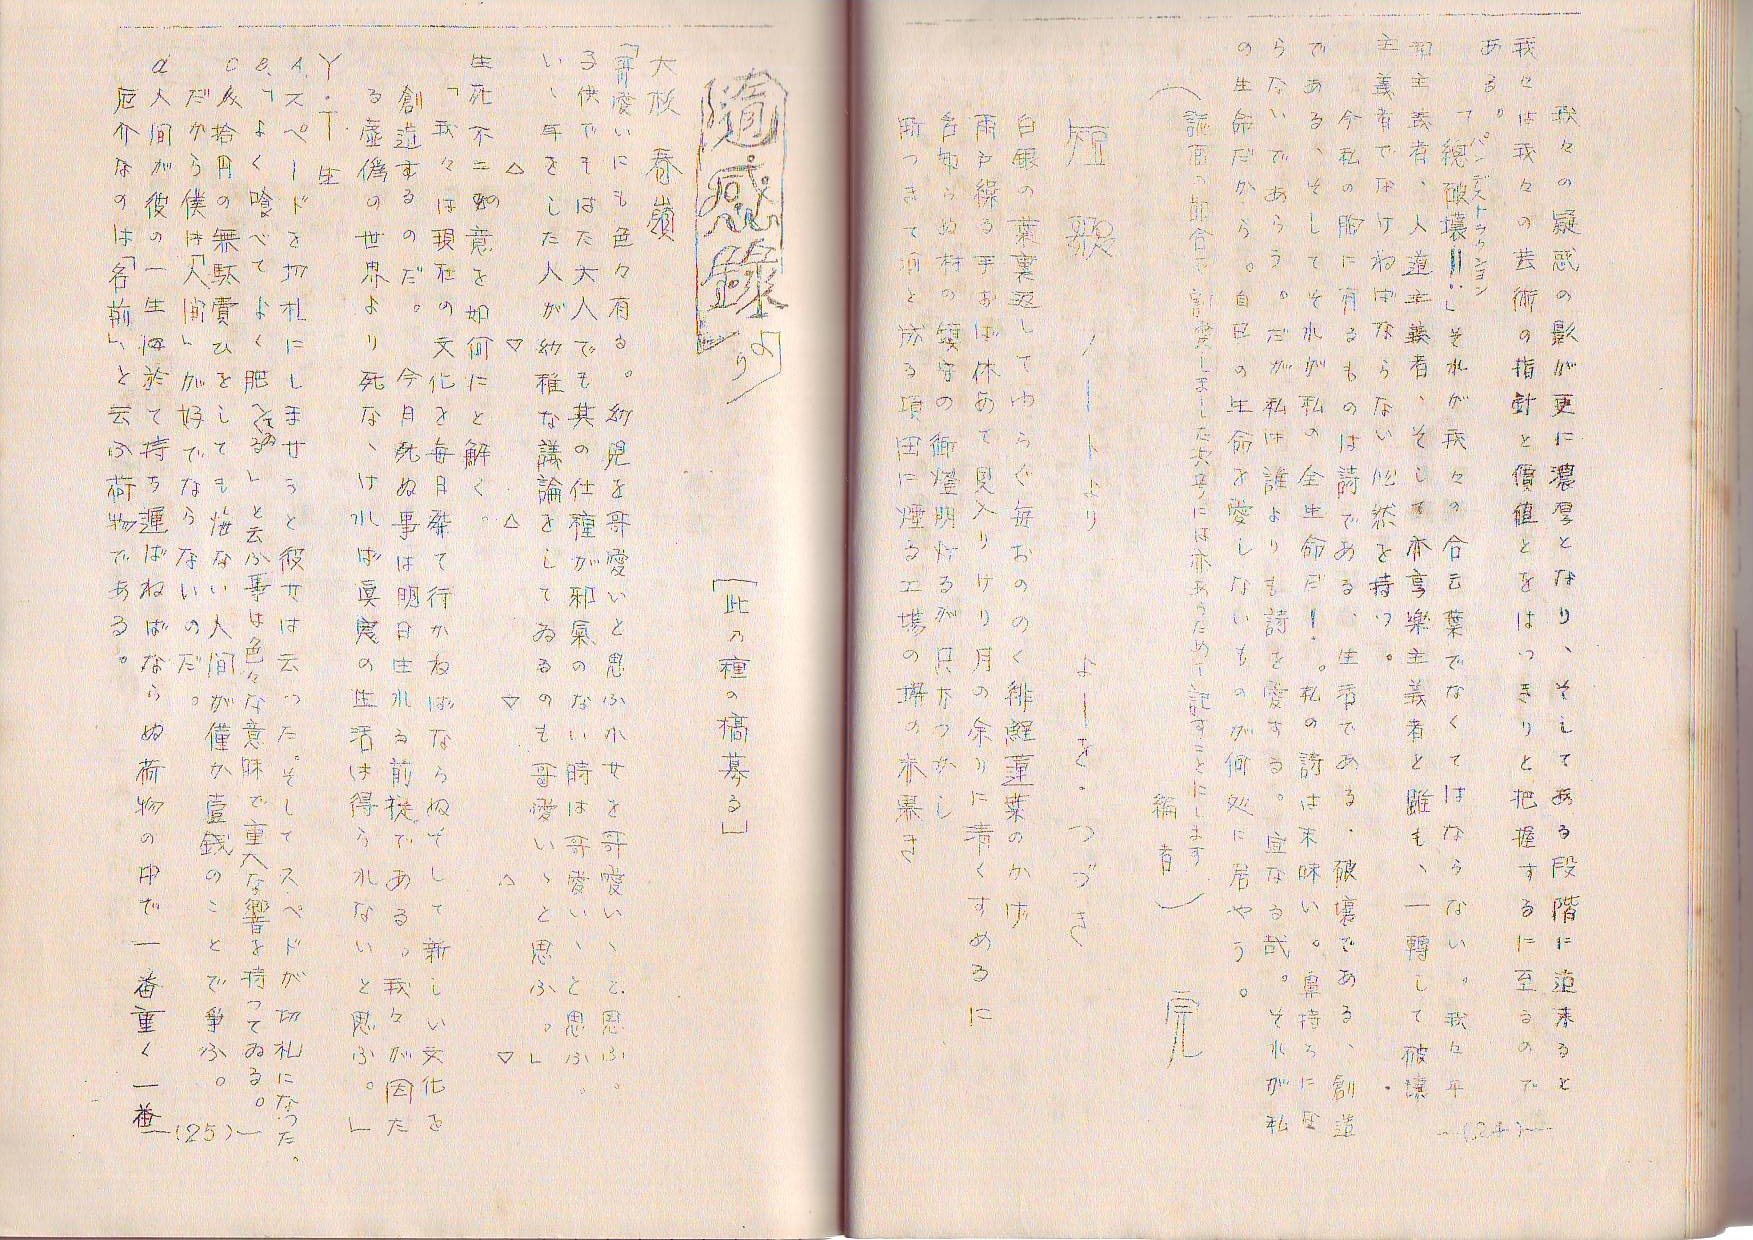 我々の疑惑の影が更に濃厚となり、そしてある段階に迄来ると
我々は我々の芸術の指針と價値とをはっきりと把握するに至るので
ある。
パンデストラクション
「總破壊‼」それが我々の合云葉でなくてはならない。我々平
和主義者、人道主義者、そして亦享樂主義者と雖も、一轉して破壊
主義者でなければならない必然を持つ。
今私の胸に有るものは詩である、生活である・破壊である、創造
である、そしてそれが私の全生命だ!。私の詩は未味い。鼻持ちにな
らないであらう。だが私は誰よりも詩を愛する。宣なる哉。それが私
の生命だから。自己の生命を愛しないものが何処に居やう。
(誌面の都合で割愛しましたが次号には亦あらためて記すことにします
編者)
完
短歌
ノートより
よーを・つづき
白銀の葉裏返してゆらぐ毎おののく緋鯉蓮葉のかげ
雨戸繰る手おば休めて見入りけり月の余りに清くすめるに
名知らぬ村の鎮守の御燈明灯るが只なつかし
所つきて河と流る頃田に煙る工場の塀の永暮き
—(24)—
隨感録より
「此の種の稿募る」
大枚 春嶺
「哥愛いにも色々有る。幼児を哥愛いと思ふれせを哥愛いゝと思ふ。
子供でもはた大人でも其の仕種が邪氣のない時は哥愛いゝと思ふ。
いゝ年をした人が幼稚な議論をしてゐるのも哥愛いゝと思ふ。」
△ ▽ △ ▽ △ ▽
生死不二の意を如何にと解く。
「我々は現在の文化を毎日築て行かねばならぬそして新しい文化を
創造するのだ。今日死ぬ事は明日生れる前提である。我々が因た
る虚偽の世界より死なゝければ眞実の生活は得られないと思ふ。」
Y・T生
A、スペードを切札にしませうと彼女は云った。そしてスペドが切札になった。
B、「よく喰べてよく肥える」と云ふ事は色々な意味で重大な響を持つてゐる。
C、拾円の無駄費ひをしても悔ない人間が僅か壹銭のことで争ふ。
だから僕は「人間」が好でならないのだ。
d 人間が彼の一生に於て持ち運ばねばならぬ荷物の中で一番重く一番
厄介なのは「名前」と云ふ荷物である。
—(25)—